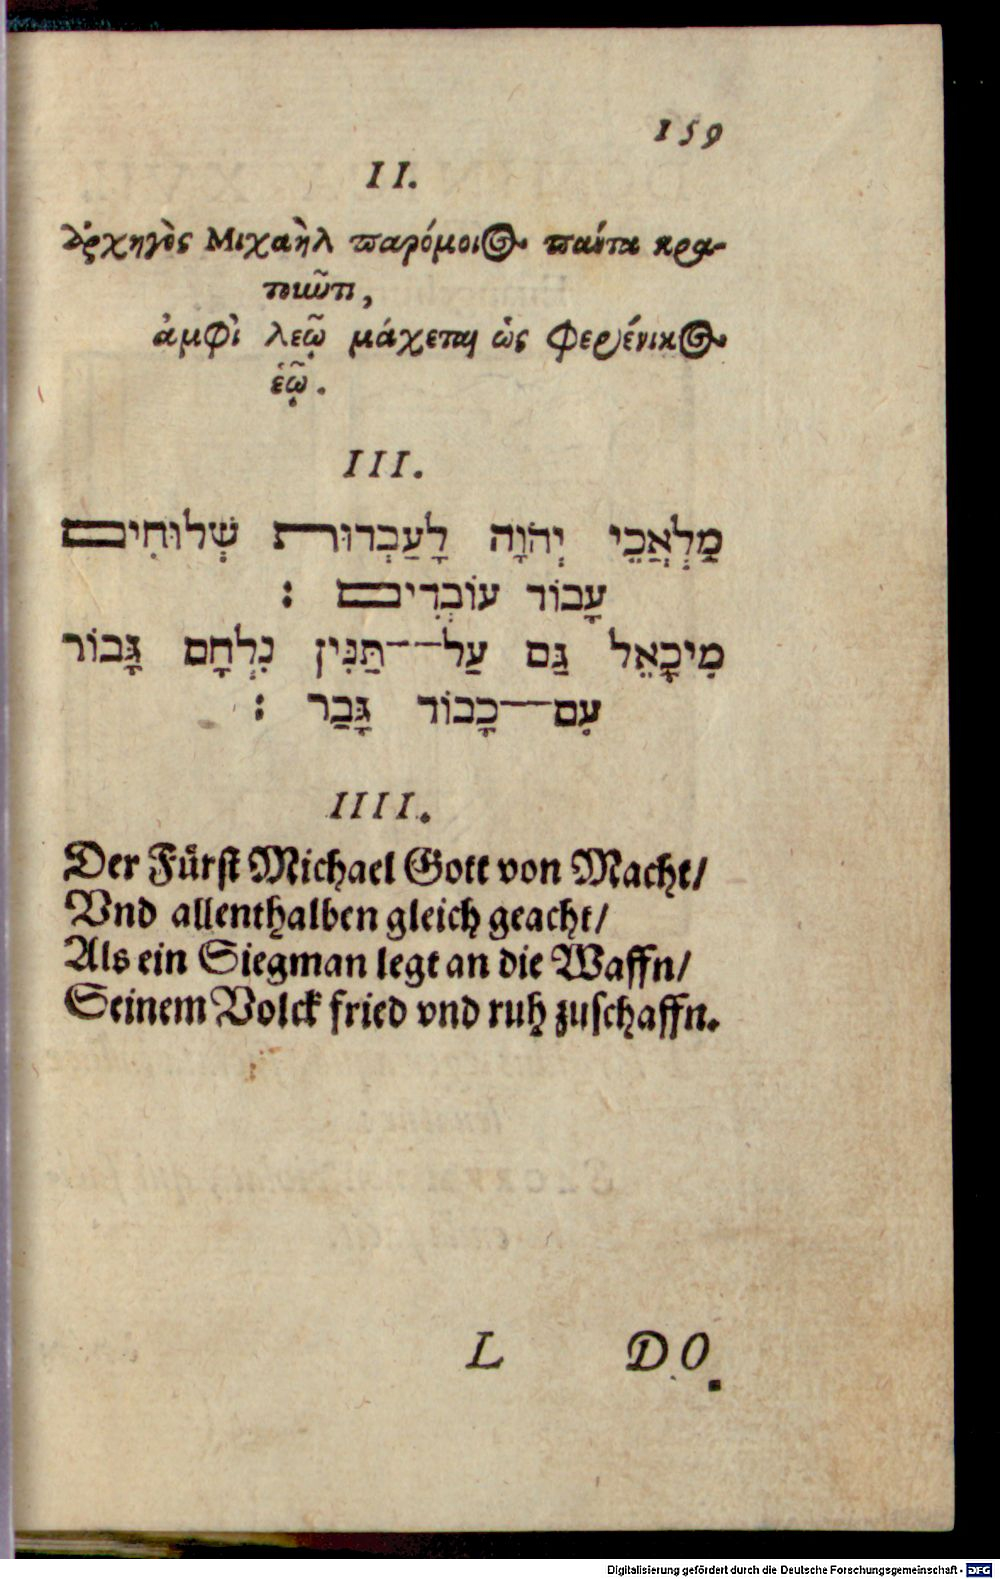 159
II.
ἀρχηγὸς Μιχαὴλ παρόμοιος πάντα κρα-
τοιῶτι,
ἀμφὶ λεῷ μάχεται ὡς Φερένικος
ἑῷ.
III.
מַלְאֲכֵי יְהֹוָה לָעַבְדוּת שְׁלוּחִים
עָבוֹד עוֹבְרִים :
מִיכָאֵל גַּם עַל־תַּנִּין נִלְחָם גָּבוֹר
עִם־כָבוֹד גָּבַר :
IIII.
Der Fürst Michael Gott von Macht/
Vnd allenthalben gleich geacht/
Als ein Siegman legt an die Waffn/
Seinem Volck fried vnd ruh zuschaffn.
L DO.
Digitalisierung gefördert durch die Deutsche Forschungsgemeinschaft - DFG